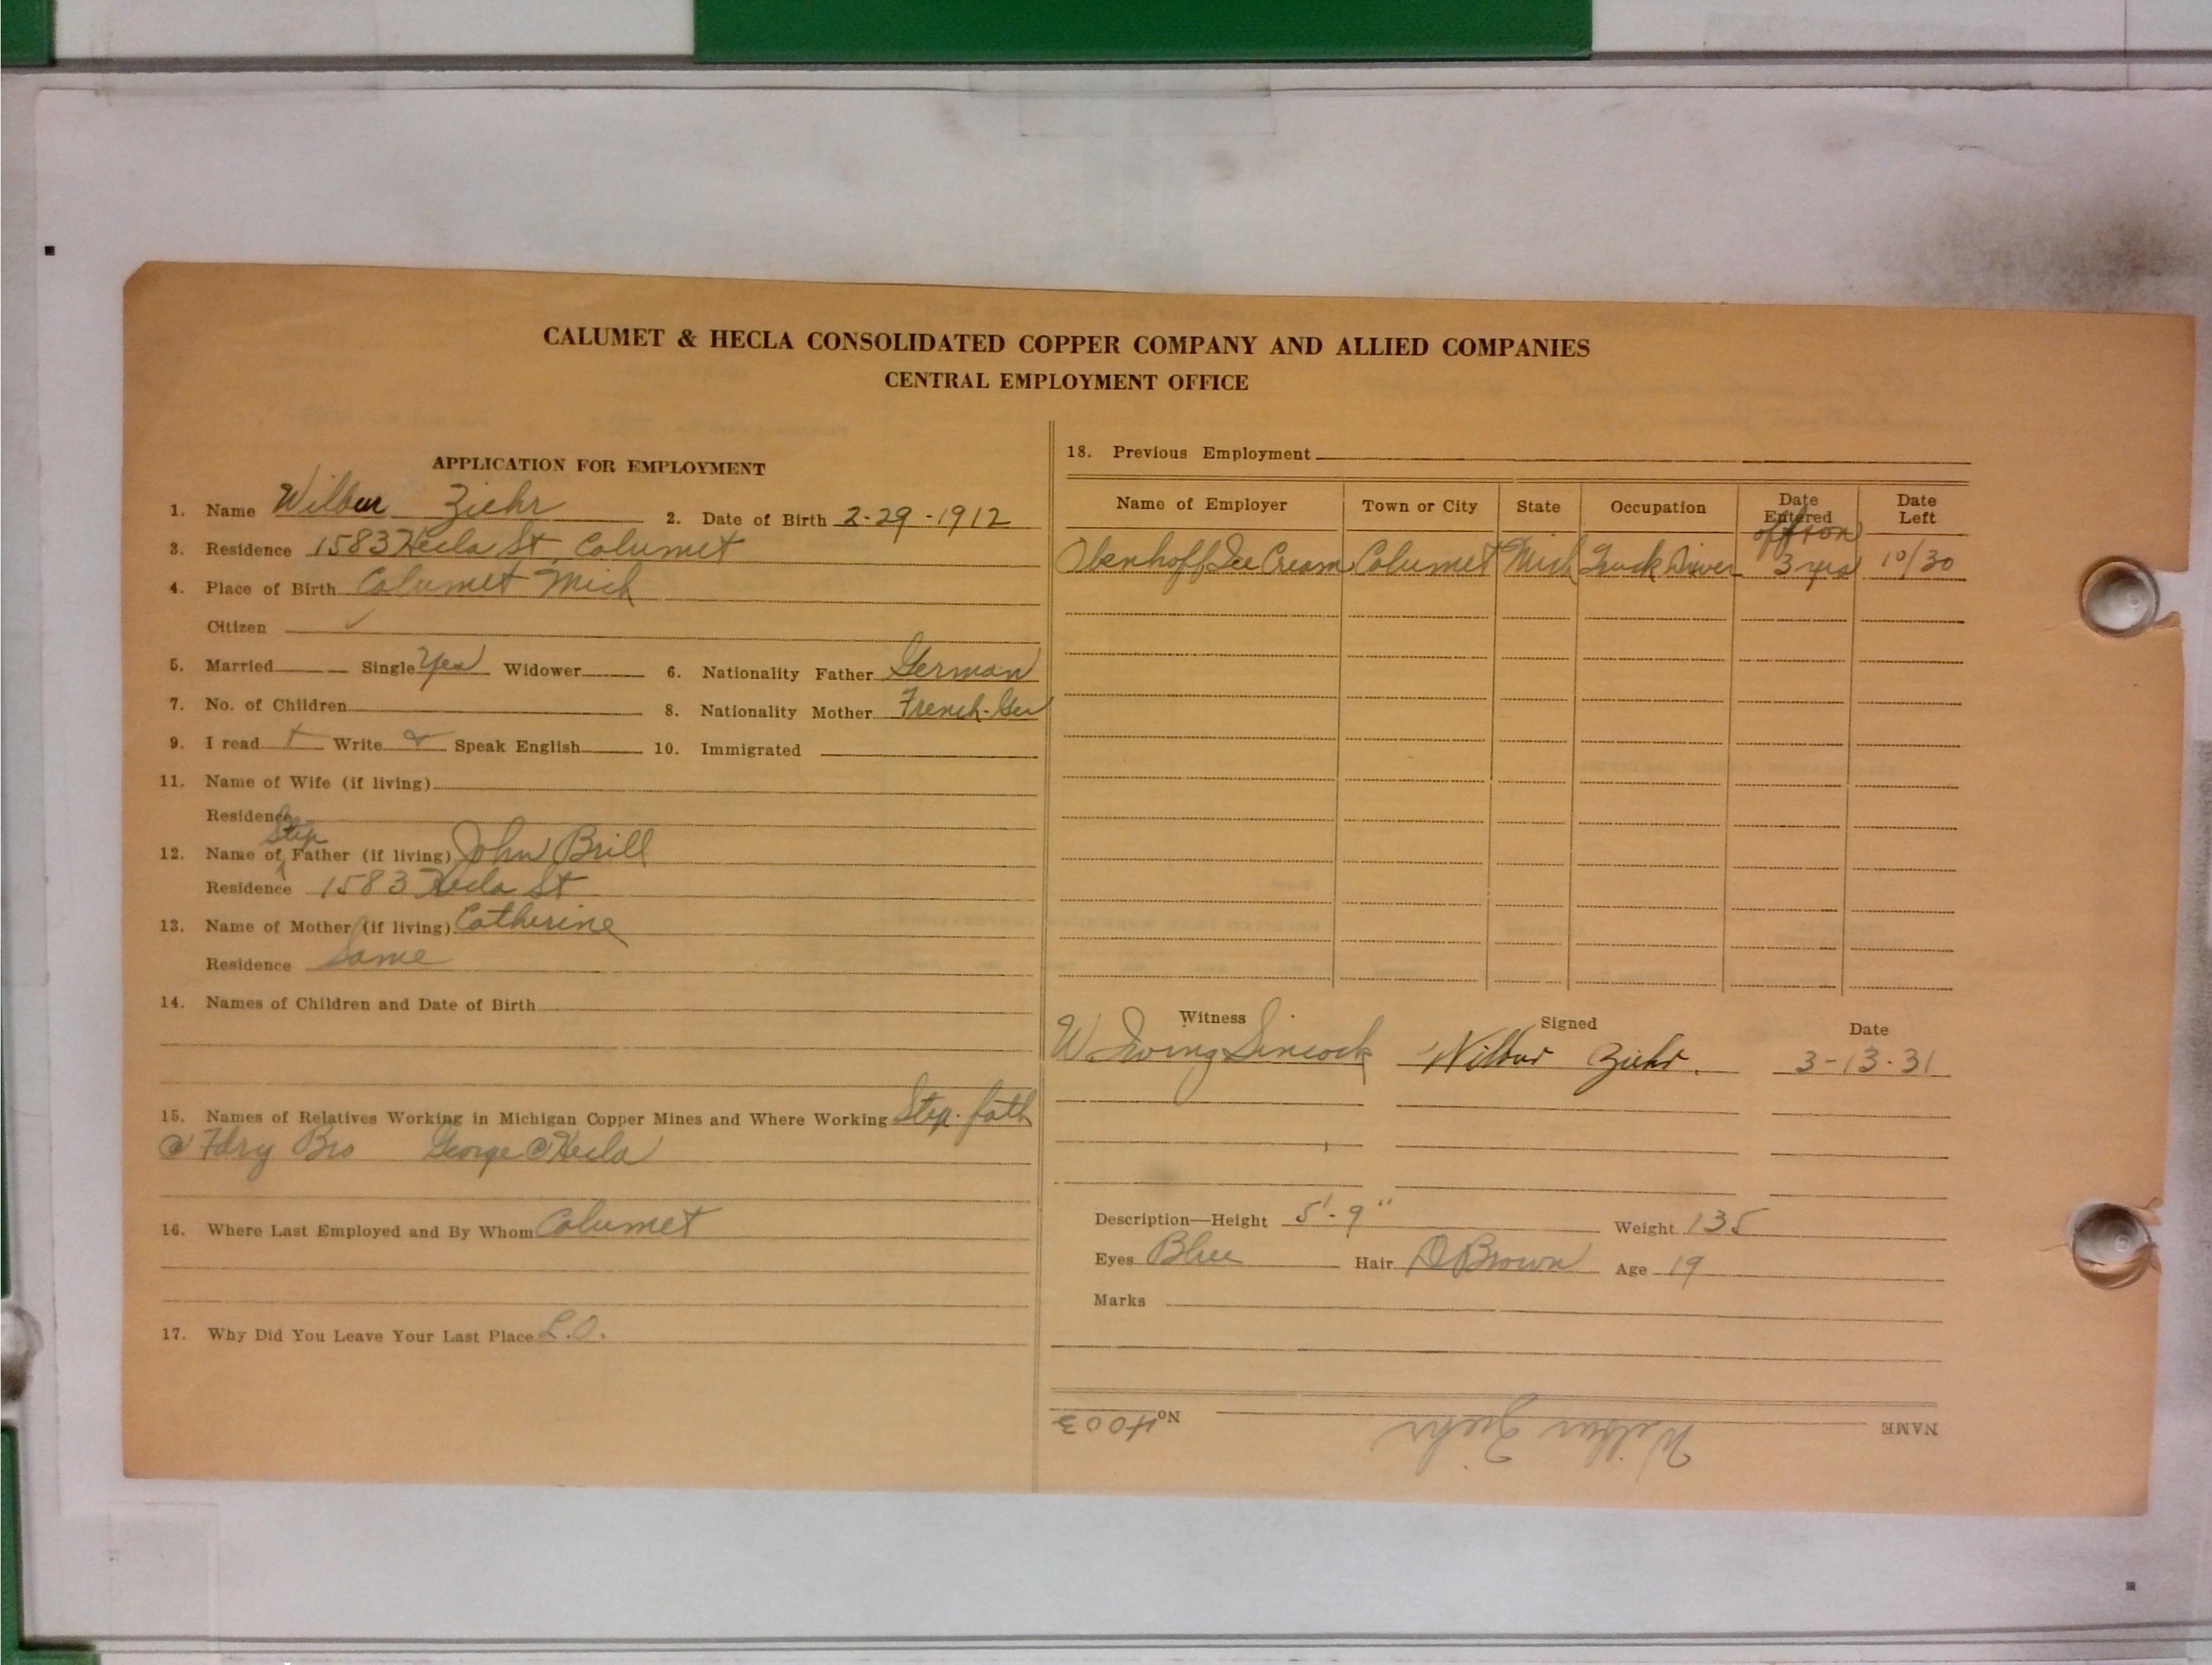 CALUMET & HECLA CONSOLIDATED COPPER COMPANY AND ALLIED COMPANIES
CENTRAL EMPLOYMENT OFFICE
APPLICATION FOR EMPLOYMENT
1. Name Wilbur Ziehr 2. Date of Birth 2-29-1912
3. Residence 1583 Hecla St, Calumet
4. Place of Birth Calumet Mich
Citizen ✓
5. Married Single Yes Widower 6. Nationality Father German
7. No. of Children 8. Nationality Mother French-Ger
9. I read Write Speak English 10. Immigrated
11. Name of Wife (if living)
Residence
12. Name of Step Father (if living) John Brill
Residence 1583 Hecla St
13. Name of Mother (if living) Catherine
Residence Same
14. Names of Children and Date of Birth
15. Names of Relatives Working in Michigan Copper Mines and Where Working Step-fath
@ Fdry Bro George @ Hecla
16. Where Last Employed and By Whom Calumet
17. Why Did You Leave Your Last Place L.O.
18. Previous Employment
Name of Employer Town or City State Occupation Date Entered Date Left
off & on
Ice Cream Calumet Mich Truck Driver 3 yrs 10/30
Witness Signed Date
W. Ewing Sincock Wilbur Ziehr. 3-13-31
Description—Height 5'-9" Weight 135
Eyes Blue Hair D Brown Age 19
Marks
NAME Wilbur Ziehr No. 4003